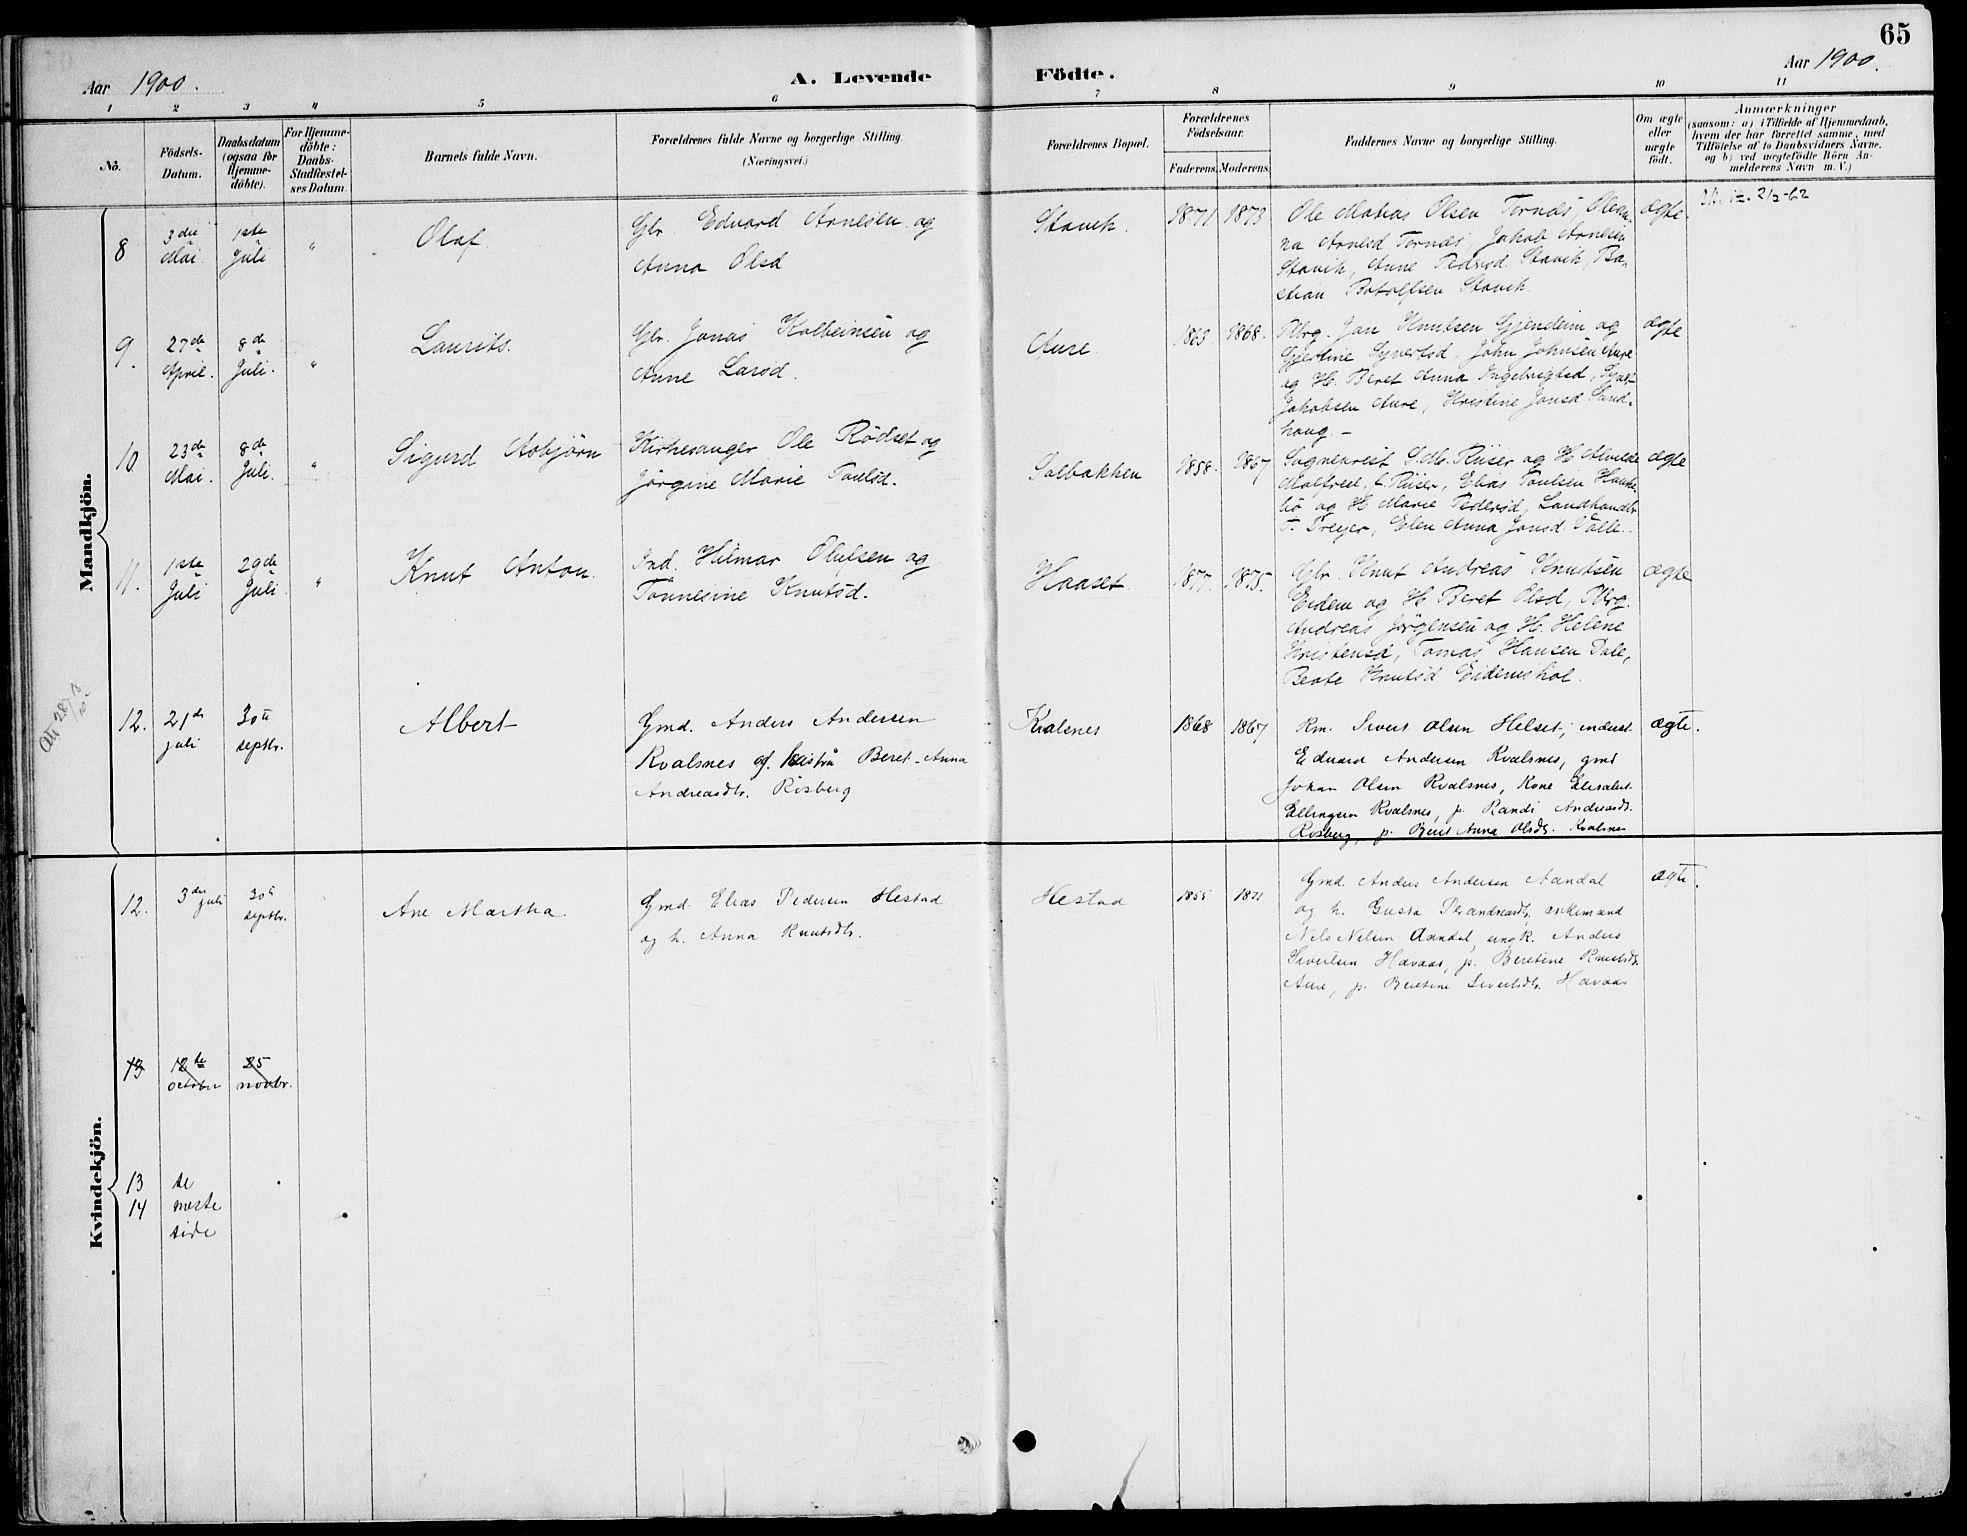 65
Aar 1900.
A. Levende Födte.
Aar 1900.
1 2 3 4 5 6 7 8 9 10 11
No.
Födsels-Datum.
Daabsdatum (ogsaa for Hjemme-döbte).
For Hjemme-döbte: Daabs-Stadfæstel-ses Datum.
Barnets fulde Navn.
Forældrenes fulde Navne og borgerlige Stilling.
(Næringsvei.)
Forældrenes Bopæl.
Forældrenes Födselsaar.
Faderens. Moderens.
Faddernes Navne og borgerlige Stilling.
Om ægte eller uægte födt.
Anmærkninger
(saasom: a) i Tilfælde af Hjemmedaab,
hvem der har forrettet samme, med
Tilföielse af to Daabsvidners Navne,
og b) ved uægtefödte Börn An-
melderens Navn m. V.)
Mandkjön.
8 3die Mai. 1ste Juli " Olaf. Gbr. Edvard Arnesen og
Anna Olsd
Stavik. 1871 1873 Ole Matias Olsen Tornæs, Olean-
na Arnesd Tornæs, Jakob Arnesen
Stavik, Anne Pedersd. Stavik, Ba-
stian Botolfsen Stavik.
ægte. 2/2-62
9. 27de April. 8de Juli. " Laurits. Gbr. Jonas Kolbeinsen og
Anne Larsd.
Aure. 1863 1868. Pbrg. Jon Knutsen Gjendem og
Gjertine Syvertsd, John Johnsen Aure
og H. Beret Anna Ingebrigtsd,
Jakobsen Aure, Kristine Jonsd Sand-
haug. -
ægte
10 23de Mai. 8de Juli. " Sigurd Asbjörn Kirkesanger Ole Rödset og
Jörgine Marie Paulsd.
Solbakken 1858. 1867 Sogneprest S. M. Riiser og H. Alvilde
f. Riiser, Elias Paulsen Hauke-
bö og H. Marie Pedersd, Landhandler
T. Preyer, Elen Anna Jonsd. Valle.
ægte
11. 1ste Juli 29de Juli. " Knut Anton. Ind. Hilmar Olufsen og
Tonnesine Knutsd.
Haaset 1877. 1875. Gbr. Knut Andreas Knutsen
Eidem og H. Beret Olsd, Pbrg.
Andreas Jörgensen og H. Helene
Kristensd, Tomas Hansen Dale,
Beate Knutsd Eidemshol.
ægte
12. 21de juli 30te septbr. Albert Gmd. Anders Andersen
Kvalsnes og hustru Beret-Anna
Andreasdtr. Risberg
Kvalsnes 1868 1867 Rm. Sivert Olsen Helset, inderst.
Edvard Andersen Kvalsnes, gmd
Johan Olsen Kvalsnes, Kone Elisabet
Ellingsen Kvalsnes, p. Randi Andreasdtr.
Risberg, p. Beret Anna Olsdtr. Kvalsnes
ægte.
Kvindekjön.
12. 3die juli 30te septbr. Ane Martha. Gmd. Elias Pedersen Hestad
og h. Anna Knutsdtr.
Hestad 1855 1871 Gmd. Anders Andersen Aandal
og h. Gusta Perandreasdtr. enkemand
Nils Nilsen Aandal, ungk. Anders
Sivertsen Havaas, p. Beretine Knutsdtr.
Aure, p. Beretine Sivertsdtr. Havaas
ægte.
13 12te october 25 novbr.
13 se
14 næste
side